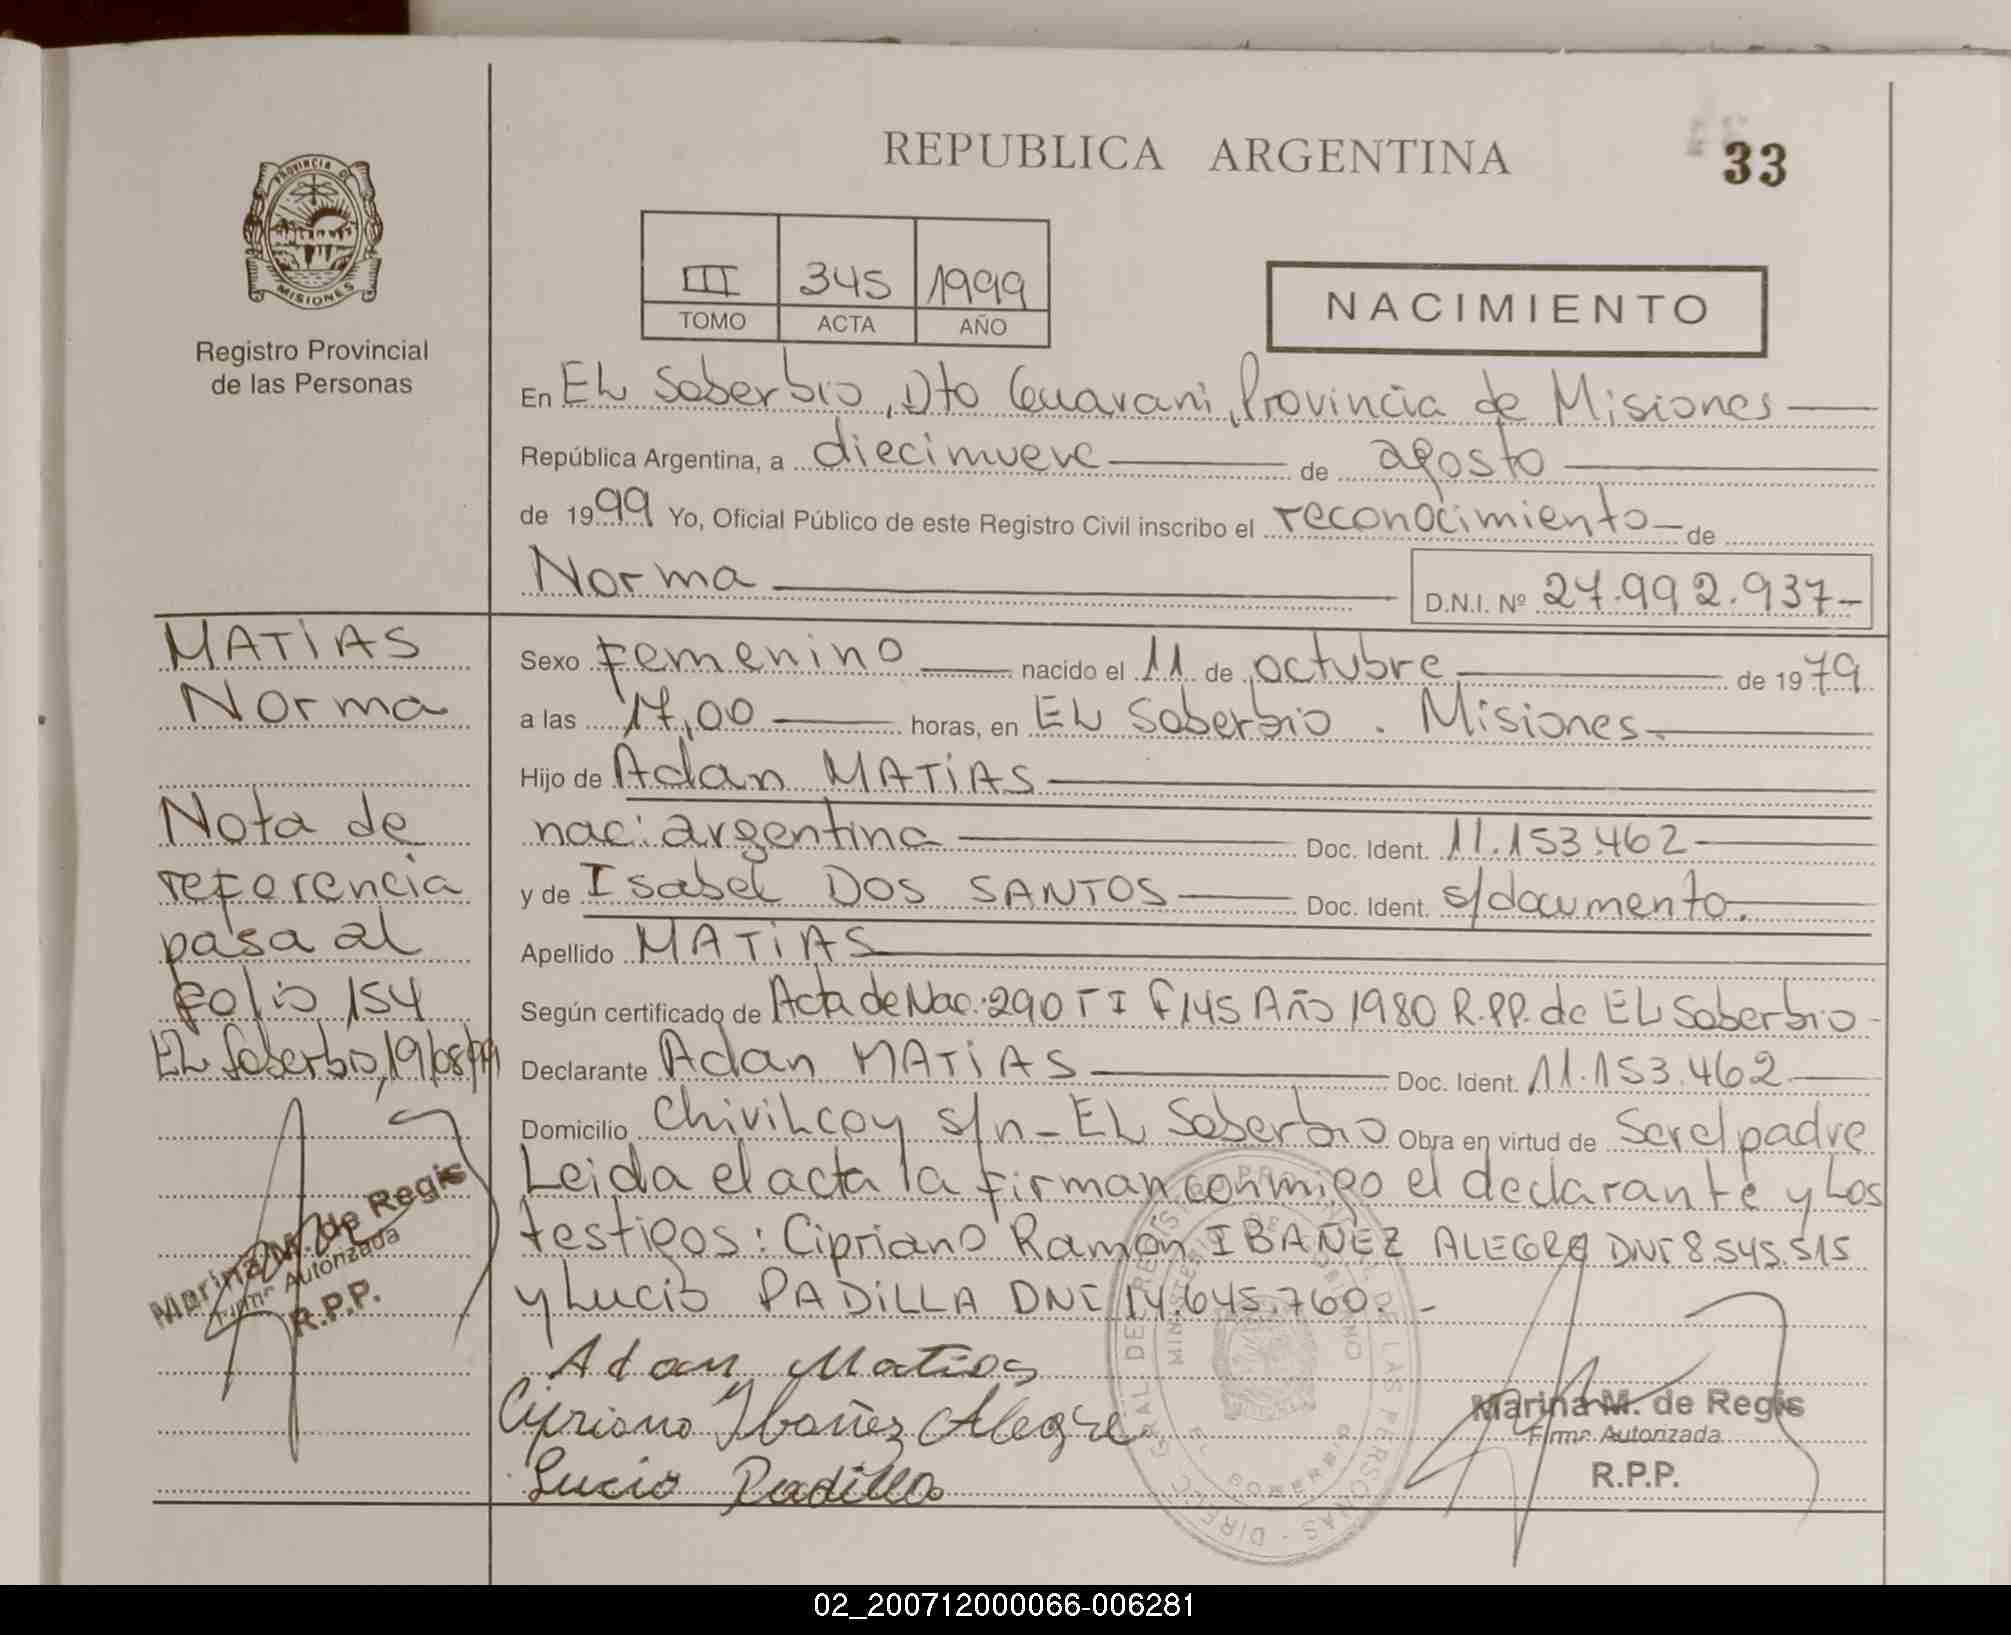 REPUBLICA ARGENTINA
33
PROVINCIA DE
MISIONES
Registro Provincial
de las Personas
III 345 1999
TOMO ACTA AÑO
NACIMIENTO
En EL Soberbio, Dto Guarani, Provincia de Misiones
República Argentina, a diecinueve de agosto
de 1999 Yo, Oficial Público de este Registro Civil inscribo el reconocimiento de
Norma D.N.I. Nº 27.992.937-
MATIAS
Norma
Nota de
referencia
pasa al
folio 154
EL Soberbio, 19/08/99
Marina M. de Regis
Firma Autorizada
R.P.P.
Sexo Femenino nacido el 11 de octubre de 1979
a las 17,00 horas, en EL Soberbio . Misiones.
Hijo de Adan MATIAS
nac: argentina Doc. Ident. 11.153.462
y de Isabel DOS SANTOS Doc. Ident. s/documento.
Apellido MATIAS
Según certificado de Acta de Nac: 290 T I F 145 Año 1980 R.P.P. de EL Soberbio-
Declarante Adan MATIAS Doc. Ident. 11.153.462
Domicilio Chivilcoy s/n - EL Soberbio Obra en virtud de Ser el padre
Leida el acta la firman conmigo el declarante y Los
testigos: Cipriano Ramón IBAÑEZ ALEGRE DNI 8.545.515
y Lucio PADILLA DNI 14.645.760. -
Adan Matias
Cipriano Ibañez Alegre
Lucio Padilla
DIREC. GRAL DE REGISTRO PROVINCIAL DE LAS PERSONAS -
MINISTERIO DE GOBIERNO
EL SOBERBIO
Marina M. de Regis
Firma Autorizada
R.P.P.
02_200712000066-006281